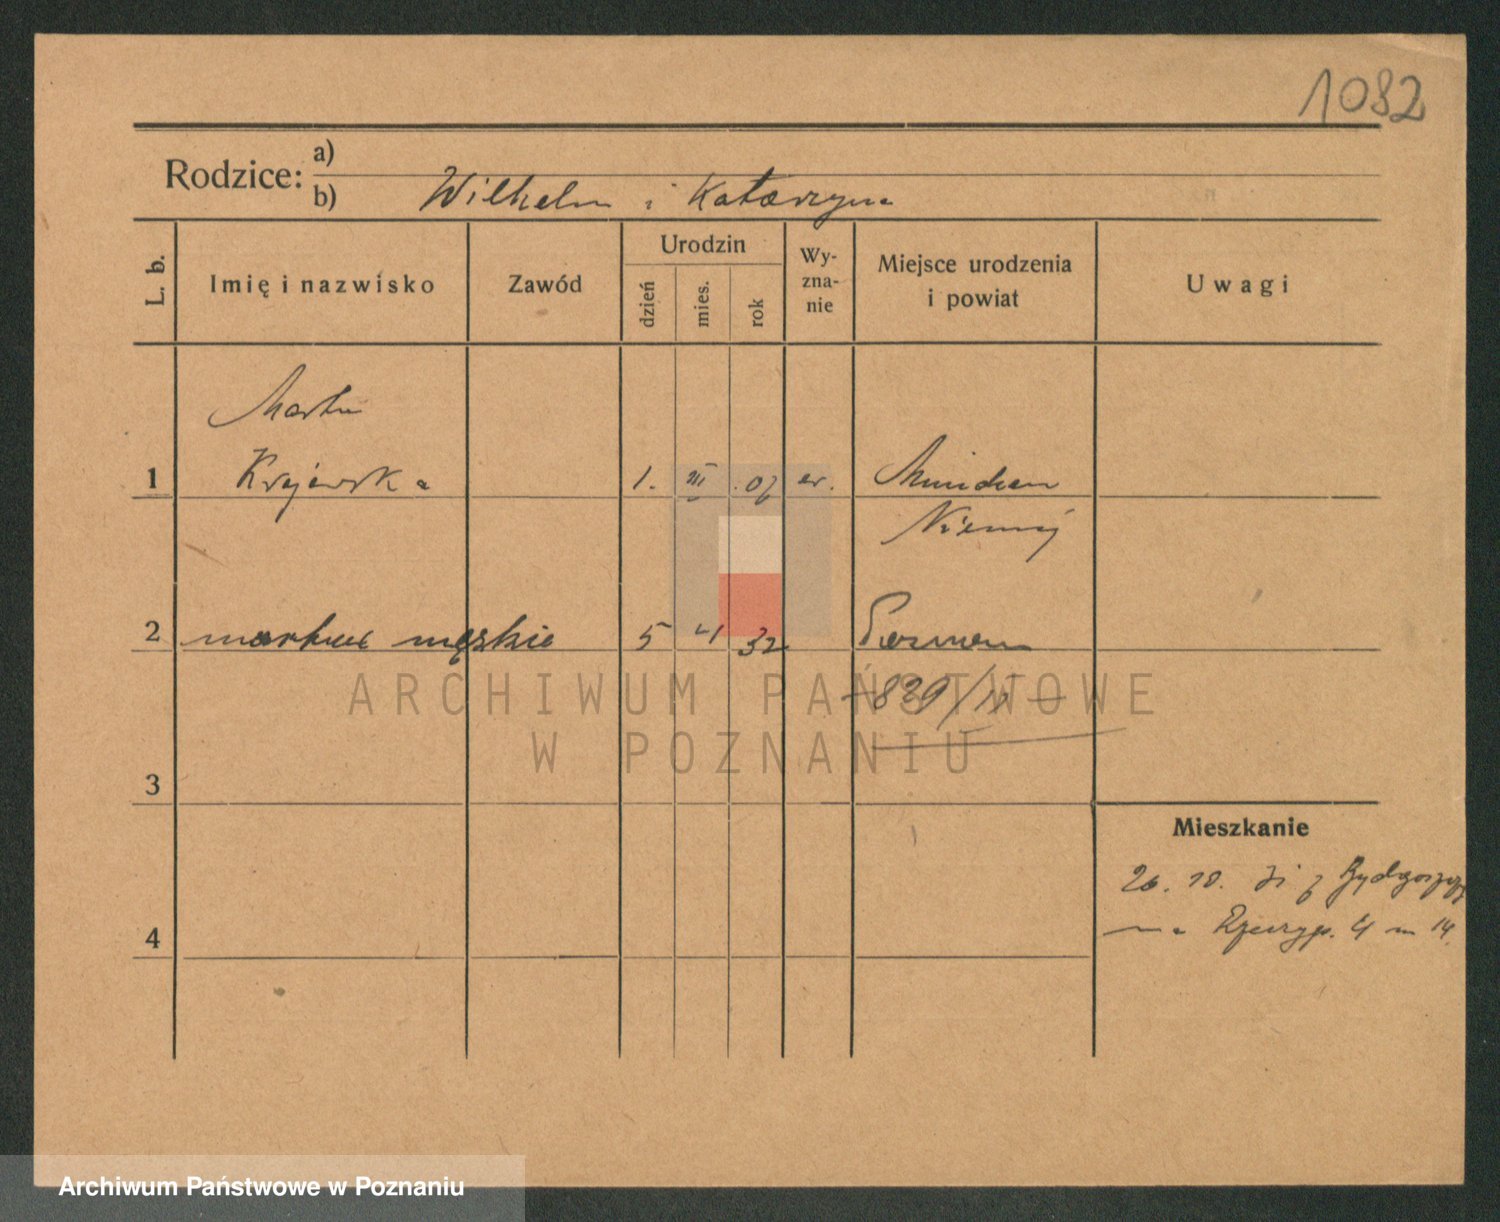 1082
Rodzice: a)
b) Wilhelm i Katarzyna
L. b.
Imię i nazwisko
Zawód
Urodzin
dzień
mies.
rok
Wy-
zna-
nie
Miejsce urodzenia
i powiat
Uwagi
1
Krajewska
1. III 07 ew. München
Niemcy
2
martwe męskie 5 4 32 Poznań
839/II
3
4
Mieszkanie
26. 10. 31 z Bydgoszczy
na Rzeczyp. 4 m 14.
ARCHIWUM PAŃSTWOWE
W POZNANIU
Archiwum Państwowe w Poznaniu